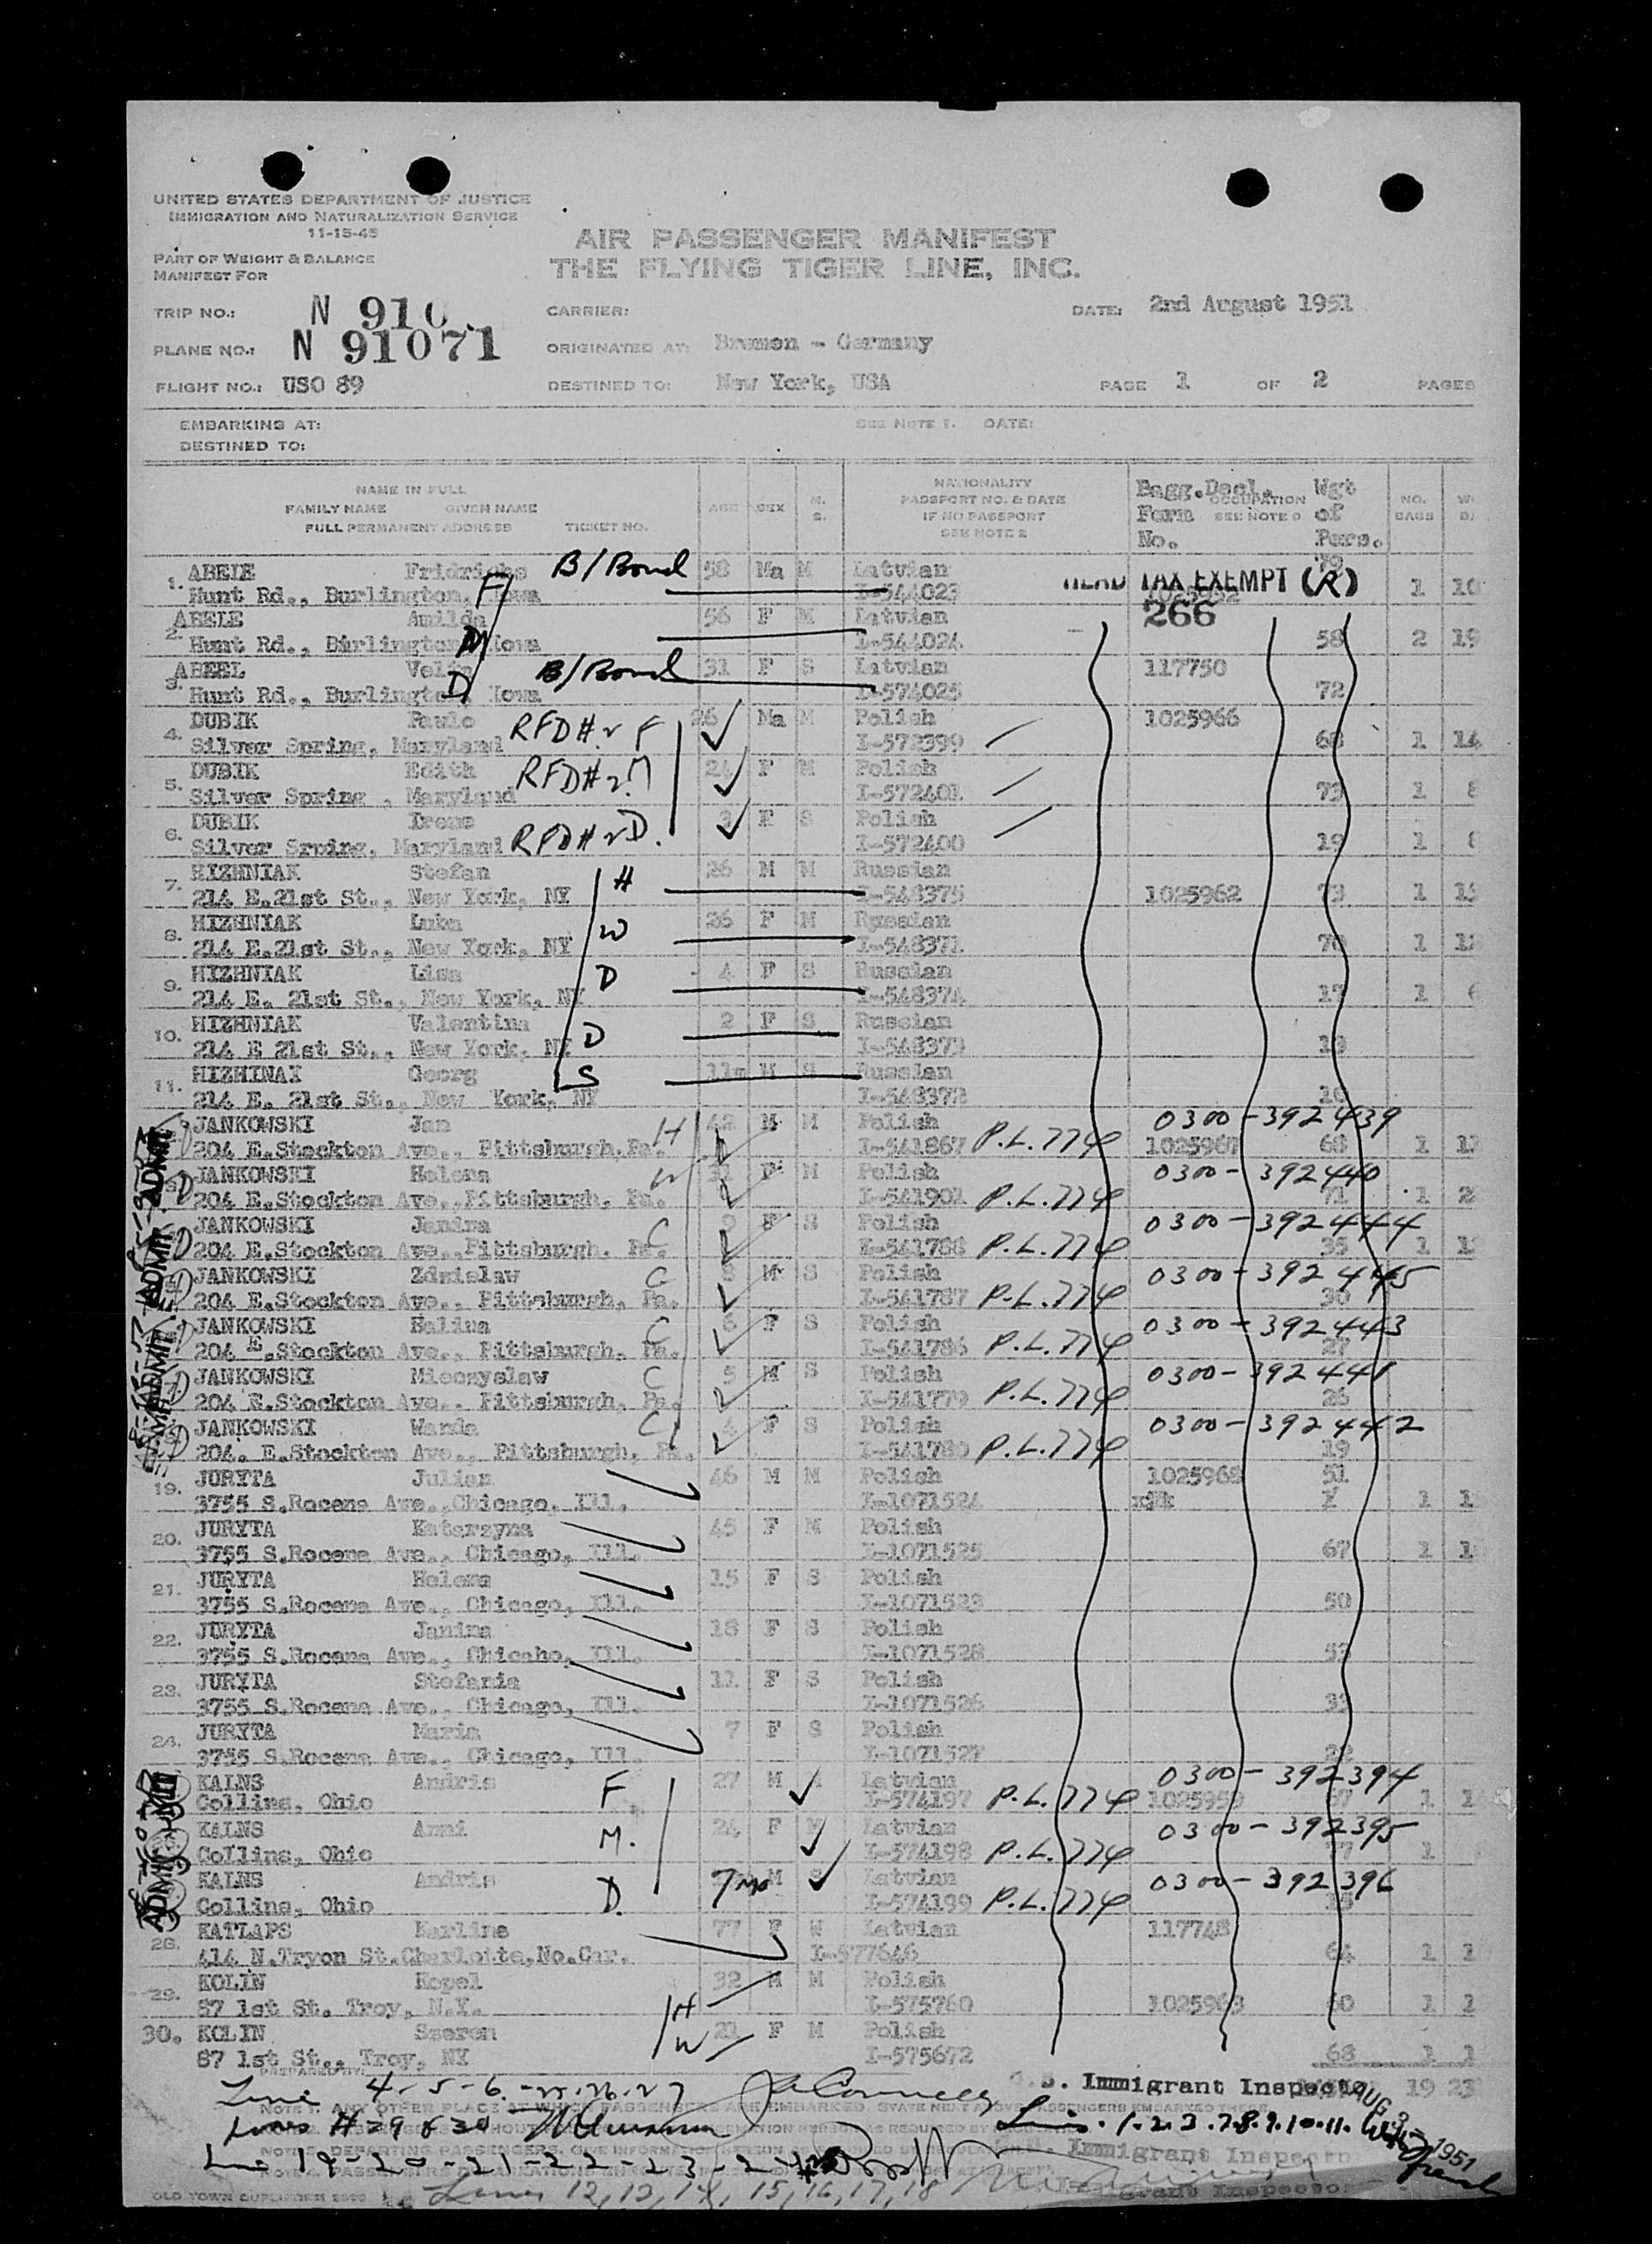 UNITED STATES DEPARTMENT OF JUSTICE
IMMIGRATION AND NATURALIZATION SERVICE
11-15-45
AIR PASSENGER MANIFEST
THE FLYING TIGER LINE, INC.
PART OF WEIGHT & BALANCE
MANIFEST FOR
TRIP NO.: N 910 CARRIER: DATE: 2nd August 1951
PLANE NO.: N 91071 ORIGINATED AT: Bremen - Germany
FLIGHT NO.: USO 89 DESTINED TO: New York, USA PAGE 1 OF 2 PAGES
EMBARKING AT: SEE NOTE 1. DATE:
DESTINED TO:
NAME IN FULL
FAMILY NAME GIVEN NAME
FULL PERMANENT ADDRESS TICKET NO.
AGE SEX M. S.
NATIONALITY
PASSPORT NO. & DATE
IF NO PASSPORT
SEE NOTE 2
Bagg.Decl. Form No. OCCUPATION SEE NOTE Wgt of Pers. NO. BAGS
1. ABELE Fridrichs B/Bond 58 Ma M Latvian
Hunt Rd., Burlington, Iowa F I-544023 1 10
HEAD TAX EXEMPT (R)
266
2. ABELE Amilda 56 F M Latvian
Hunt Rd., Burlington Iowa M I-544024 58 2 19
3. ABEEL B/Bond 31 F S Latvian 117750
Hunt Rd., Burlington Iowa D I-574025 72
4. DUBIK Pawlo RFD#2 F 26 Ma M Polish 1025966
Silver Spring, Maryland I-572399 68 1 14
5. DUBIK Edith RFD#2 M 24 F M Polish
Silver Spring , Maryland I-572401 73 1 8
6. DUBIK Irene RFD#2 D. 3 F S Polish
Silver Srping, Maryland I-572400 19 1
7. HIZHNIAK Stefan H 26 M M Russian
214 E.21st St., New York, NY I-548375 1025962 73 1
8. HIZHNIAK Luba W 26 F M Russian
214 E.21st St., New York, NY I-548371 70 1
9. HIZHNIAK Lisa D 4 F S Russian
214 E. 21st St., New York, NY I-548374 17 1
10. HIZHNIAK Valentina D 2 F S Russian
214 E 21st St., New York, NY I-548373 13
11. HIZHINAX Georg S 11m M S Russian
214 E. 21st St., New York, NY I-548372 10
JANKOWSKI Jan H 42 M M Polish 0300-392439
204 E.Stockton Ave., Pittsburgh,Pa. I-541867 P.L.774 68 1
JANKOWSKI Helena W 31 F M Polish 0300-392440
204 E.Stockton Ave.,Pittsburgh, Pa. I-541902 P.L.774 71 1
JANKOWSKI Janina C 9 F S Polish 0300-392444
204 E.Stockton Ave.,Pittsburgh, Pa. I-541788 P.L.774 35 1
JANKOWSKI Zdzislaw C 8 M S Polish 0300-392445
204 E.Stockton Ave., Pittsburgh, Pa. I-541787 P.L.774 30
JANKOWSKI Halina C 6 F S Polish 0300-392443
204 E.Stockton Ave., Pittsburgh, Pa. I-541786 P.L.774 27
JANKOWSKI Mieczyslaw C 5 M S Polish 0300-392441
204 E.Stockton Ave., Pittsburgh, Pa. I-541779 P.L.774 26
JANKOWSKI Wanda C 4 F S Polish 0300-392442
204. E.Stockton Ave., Pittsburgh, Pa. I-541780 P.L.774 19
19. JURYTA Julian 46 M M Polish 1025968 51
3755 S.Rocena Ave.,Chicago, Ill. I-1071524 1
20. JURYTA Katarzyna 45 F M Polish
3755 S.Rocena Ave., Chicago, Ill. I-1071525 67 1
21. JURYTA Helena 15 F S Polish
3755 S.Rocena Ave., Chicago, Ill. I-1071523 50
22. JURYTA Janina 18 F S Polish
3755 S.Rocena Ave., Chicaho, Ill. I-1071528 53
23. JURYTA Stefania 11 F S Polish
3755 S.Rocena Ave., Chicago, Ill. I-1071526 33
24. JURYTA Maria 7 F S Polish
3755 S.Rocena Ave., Chicago, Ill. I-1071527 22
KALNS Andris F. 27 M Latvian 0300-392394
Collins, Ohio I-574197 P.L.774 1025959 67 1
KALNS Anni M. 24 F M Latvian 0300-392395
Collins, Ohio I-574198 P.L.774 77 1
KALNS Andris D. 7mo M S Latvian 0300-392396
Collins, Ohio I-574199 P.L.774
28. KATLAPS Karline 77 F W Latvian 117748
414 N.Tryon St.Charlotte,No.Car. I-577646 64 1
29. KOLIN Kopel H 32 M M Polish
87 1st St. Troy, N.Y. I-575760 1025963 60 1
30. KOLIN Szeren W 21 F M Polish
87 1st St., Troy, NY I-575672 68 1
Line 4-5-6-25-26-27
U.S. Immigrant Inspector 19 23
AUG 3 - 1951
Lines # 29 & 30
Lines. 1.2.3.7.8.9.10.11.
Immigrant Inspector
Line 19-20-21-22-23-24
Immigrant Inspector
Lines 12, 13, 14, 15, 16, 17, 18
NOTE 1. ANY OTHER PLACE AT WHICH PASSENGERS ARE EMBARKED. STATE NEXT ABOVE PASSENGERS EMBARKED THERE.